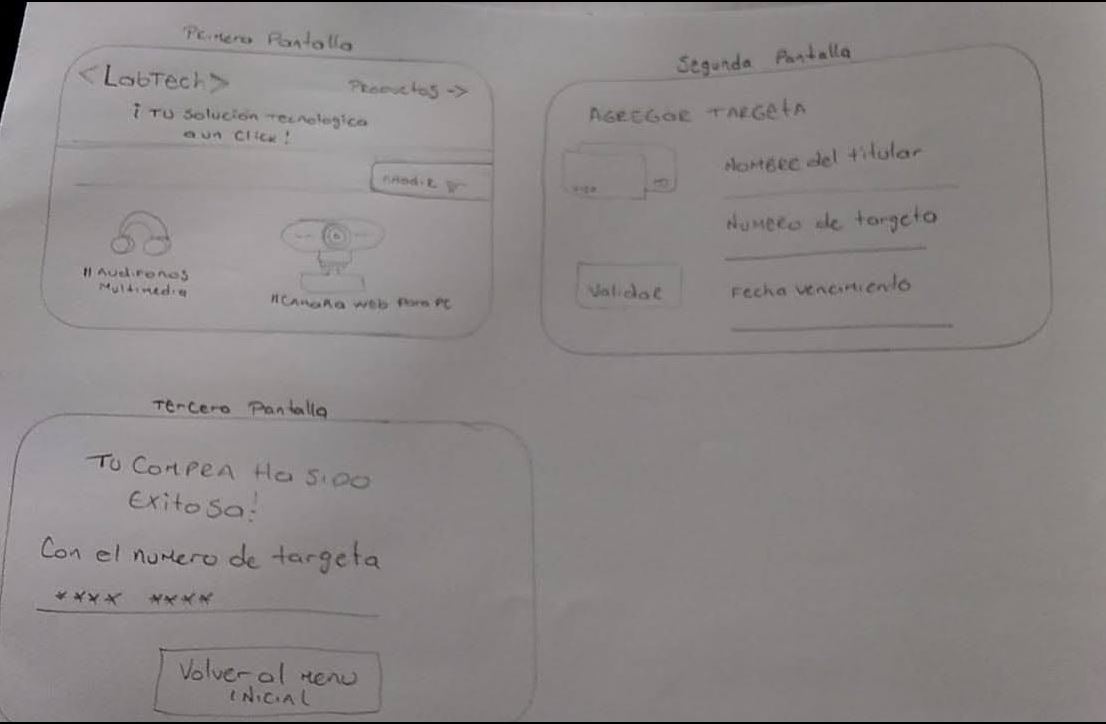 Primera Pantalla
<LabTech>
Productos ->
¡ Tu solución tecnologica
a un Click!
Añadir
// Audifonos
Multimedia
// Camara web para PC
Segunda Pantalla
AGREGAR TARGETA
VISA
Nombre del titular
Numero de targeta
Validar
Fecha vencimiento
Tercera Pantalla
Tu Compra Ha sido
Exitosa!
Con el numero de targeta
**** ****
Volver al menu
INICIAL